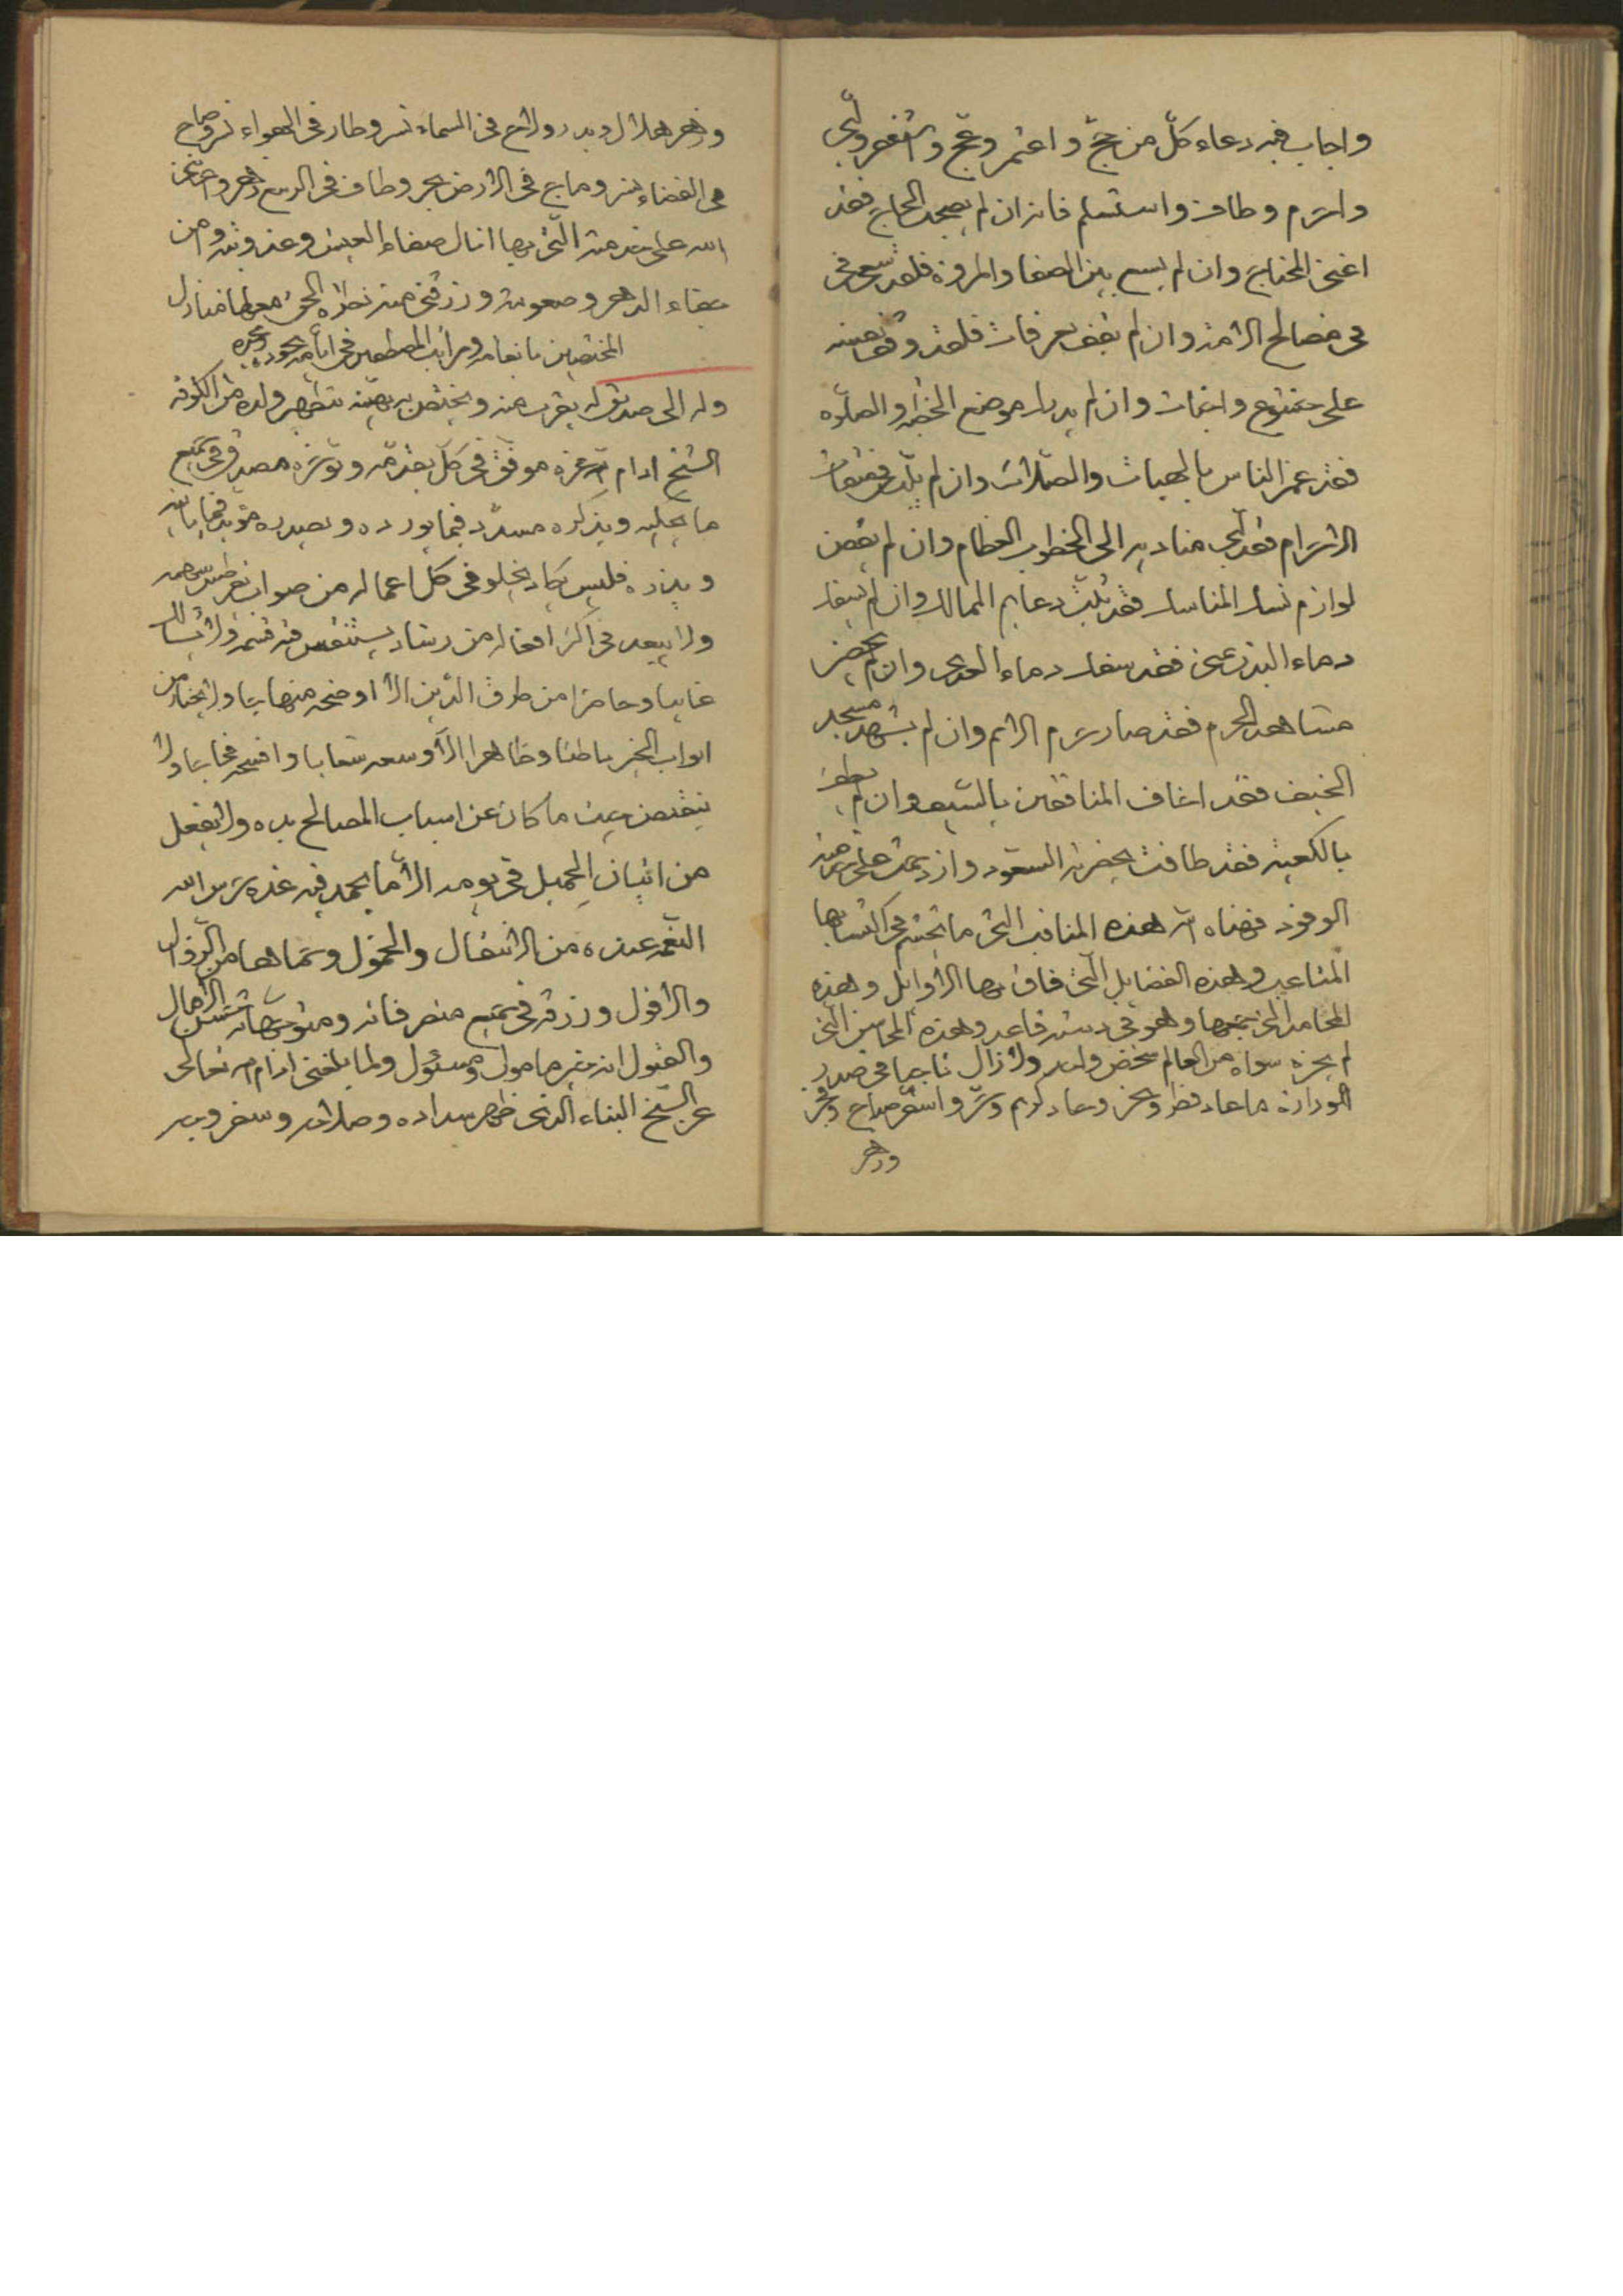 واجاب فيه دعاء كلّ من حجّ واعتمر وعجّ واستغفر ولبّى
واحرم وطاف واستسلم فانه ان لم يصحب الحاج فقد
اغنى المحتاج وان لم يسع بين الصفا والمروة فلقد سعى فى
فى مصالح الامة وان لم يقف بعرفات فلقد وقف نفسه
على خشوع واخبات وان لم يدرك موضع الخطبة والصلاة
فقد غمر الناس بالهبات والصلات وان لم يلبّ فى ميقات
الاحرام فقد لبّى مناديه الى الخطوب العظام وان لم يقض
لوازم نسك المناسك فقد ثبّت دعايم الممالك وان لم يسفك
دماء البدن بمنى فقد سفك دماء العدى وان لم يحضر
مشاهد الحرم فقد صار حرم الامم وان لم يشهد مسجد
الخيف فقد اخاف المنافقين بالسيف وان لم يطف
بالكعبة فقد طافت بحضرته السعود وازدحمت على حرمته
الوفود فهناه الله هذه المناقب التى ما تجشم فى اكتسابها
المتاعب وهذه الفضايل التى فاق بها الاوايل وهذه
المحامد التى جمعها وهو فى دسته قاعد وهذه المحاسن التى
لم يحزه سواه من العالم شخص واحد ولا زال ناجيا فى صدر
الوزارة ما عاد فطر ونحر وعاد كريم وبشّر واسفر صباح وفجر
وزهر
وزهر هلال وبدر ولاح فى السماء نسر وطار فى الهواء نسر وصاح
فى الفضاء نسر وماج فى الارض بحر وطاف فى الدهر
الله على خدمته التى بها انال صفاء العيش وعذوبته وامن
جفاء الدهر وصعوبته ورزقنى منه نظرة الحق معها منازل
المختصين بانعامه ومراتب المصطفين فى ايامه بجوده
وله الى صديق له يقرب منه ويختص به يهنّيه بتطهير ولده من الكوفة
الشيخ ادام الله عزه موفق فى كلّ يقدّمه ويوخره مصدق فى جميع
ما يحكيه ويذكره مسدّد فيما يورده ويصدره مؤيد فيما ياتيه
ويذره فليس يكاد يخلو فى كل اعماله من صواب يقرطس سهمه
ولا يبعد فى اكثر افعاله من رشاد يستنفس فيه قسمه ولا يسلك
غايبا وحاضرا من طرق الدّين الا اوضحه منهاجا ولا يختار من
ابواب الخير باطنا وظاهرا الا اوسعه شعابا وافسحه فجاجا ولا
ينقبض حيث ما كان عن اسباب المصالح يده ولا يفعل
من اتيان الجميل فى يومه الا ما يحمد فيه غده حرس الله
النعمة عنده من الانتقال والخمول وحماها من الزوال
والافول ورزقه فى جميع منصرفاته ومتوجهاته تمثيل الامال
والقبول انه خير مامول ومسئول ولما بلغنى ادام الله تعالى
عز الشيخ البناء الذى ظهر سداده وصلاحه وسفر وجه